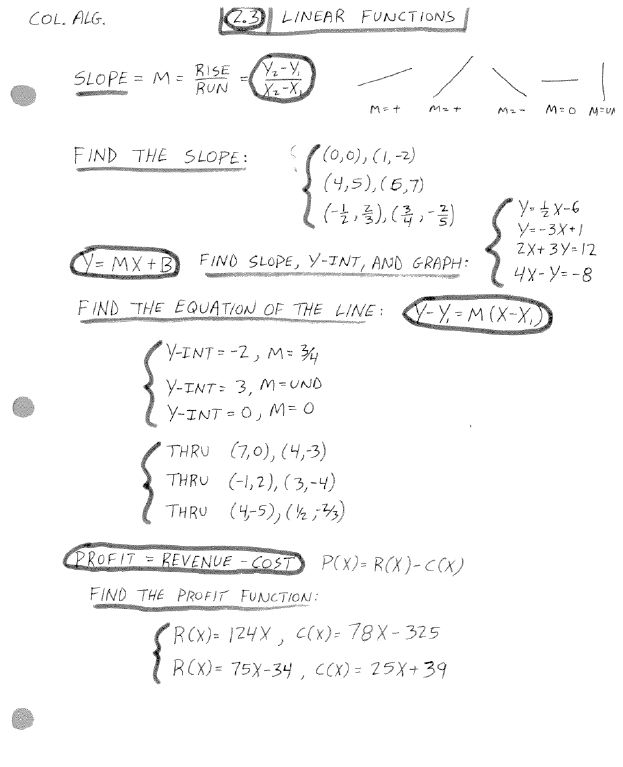 COL. ALG. 2.3 LINEAR FUNCTIONS
SLOPE = M = RISE/RUN = Y₂-Y₁/X₂-X₁
M=+ M=+ M=- M=0 M=UN
FIND THE SLOPE:
(0,0), (1,-2)
(4,5), (5,7)
(-1/2, 2/3), (3/4, -2/5)
Y=MX+B FIND SLOPE, Y-INT, AND GRAPH:
Y=1/2X-6
Y=-3X+1
2X+3Y=12
4X-Y=-8
FIND THE EQUATION OF THE LINE: Y-Y₁=M(X-X₁)
Y-INT=-2, M=3/4
Y-INT=3, M=UND
Y-INT=0, M=0
THRU (7,0), (4,-3)
THRU (-1,2), (3,-4)
THRU (4,-5), (1/2,-2/3)
PROFIT = REVENUE - COST P(X)=R(X)-C(X)
FIND THE PROFIT FUNCTION:
R(X)=124X, C(X)=78X-325
R(X)=75X-34, C(X)=25X+39